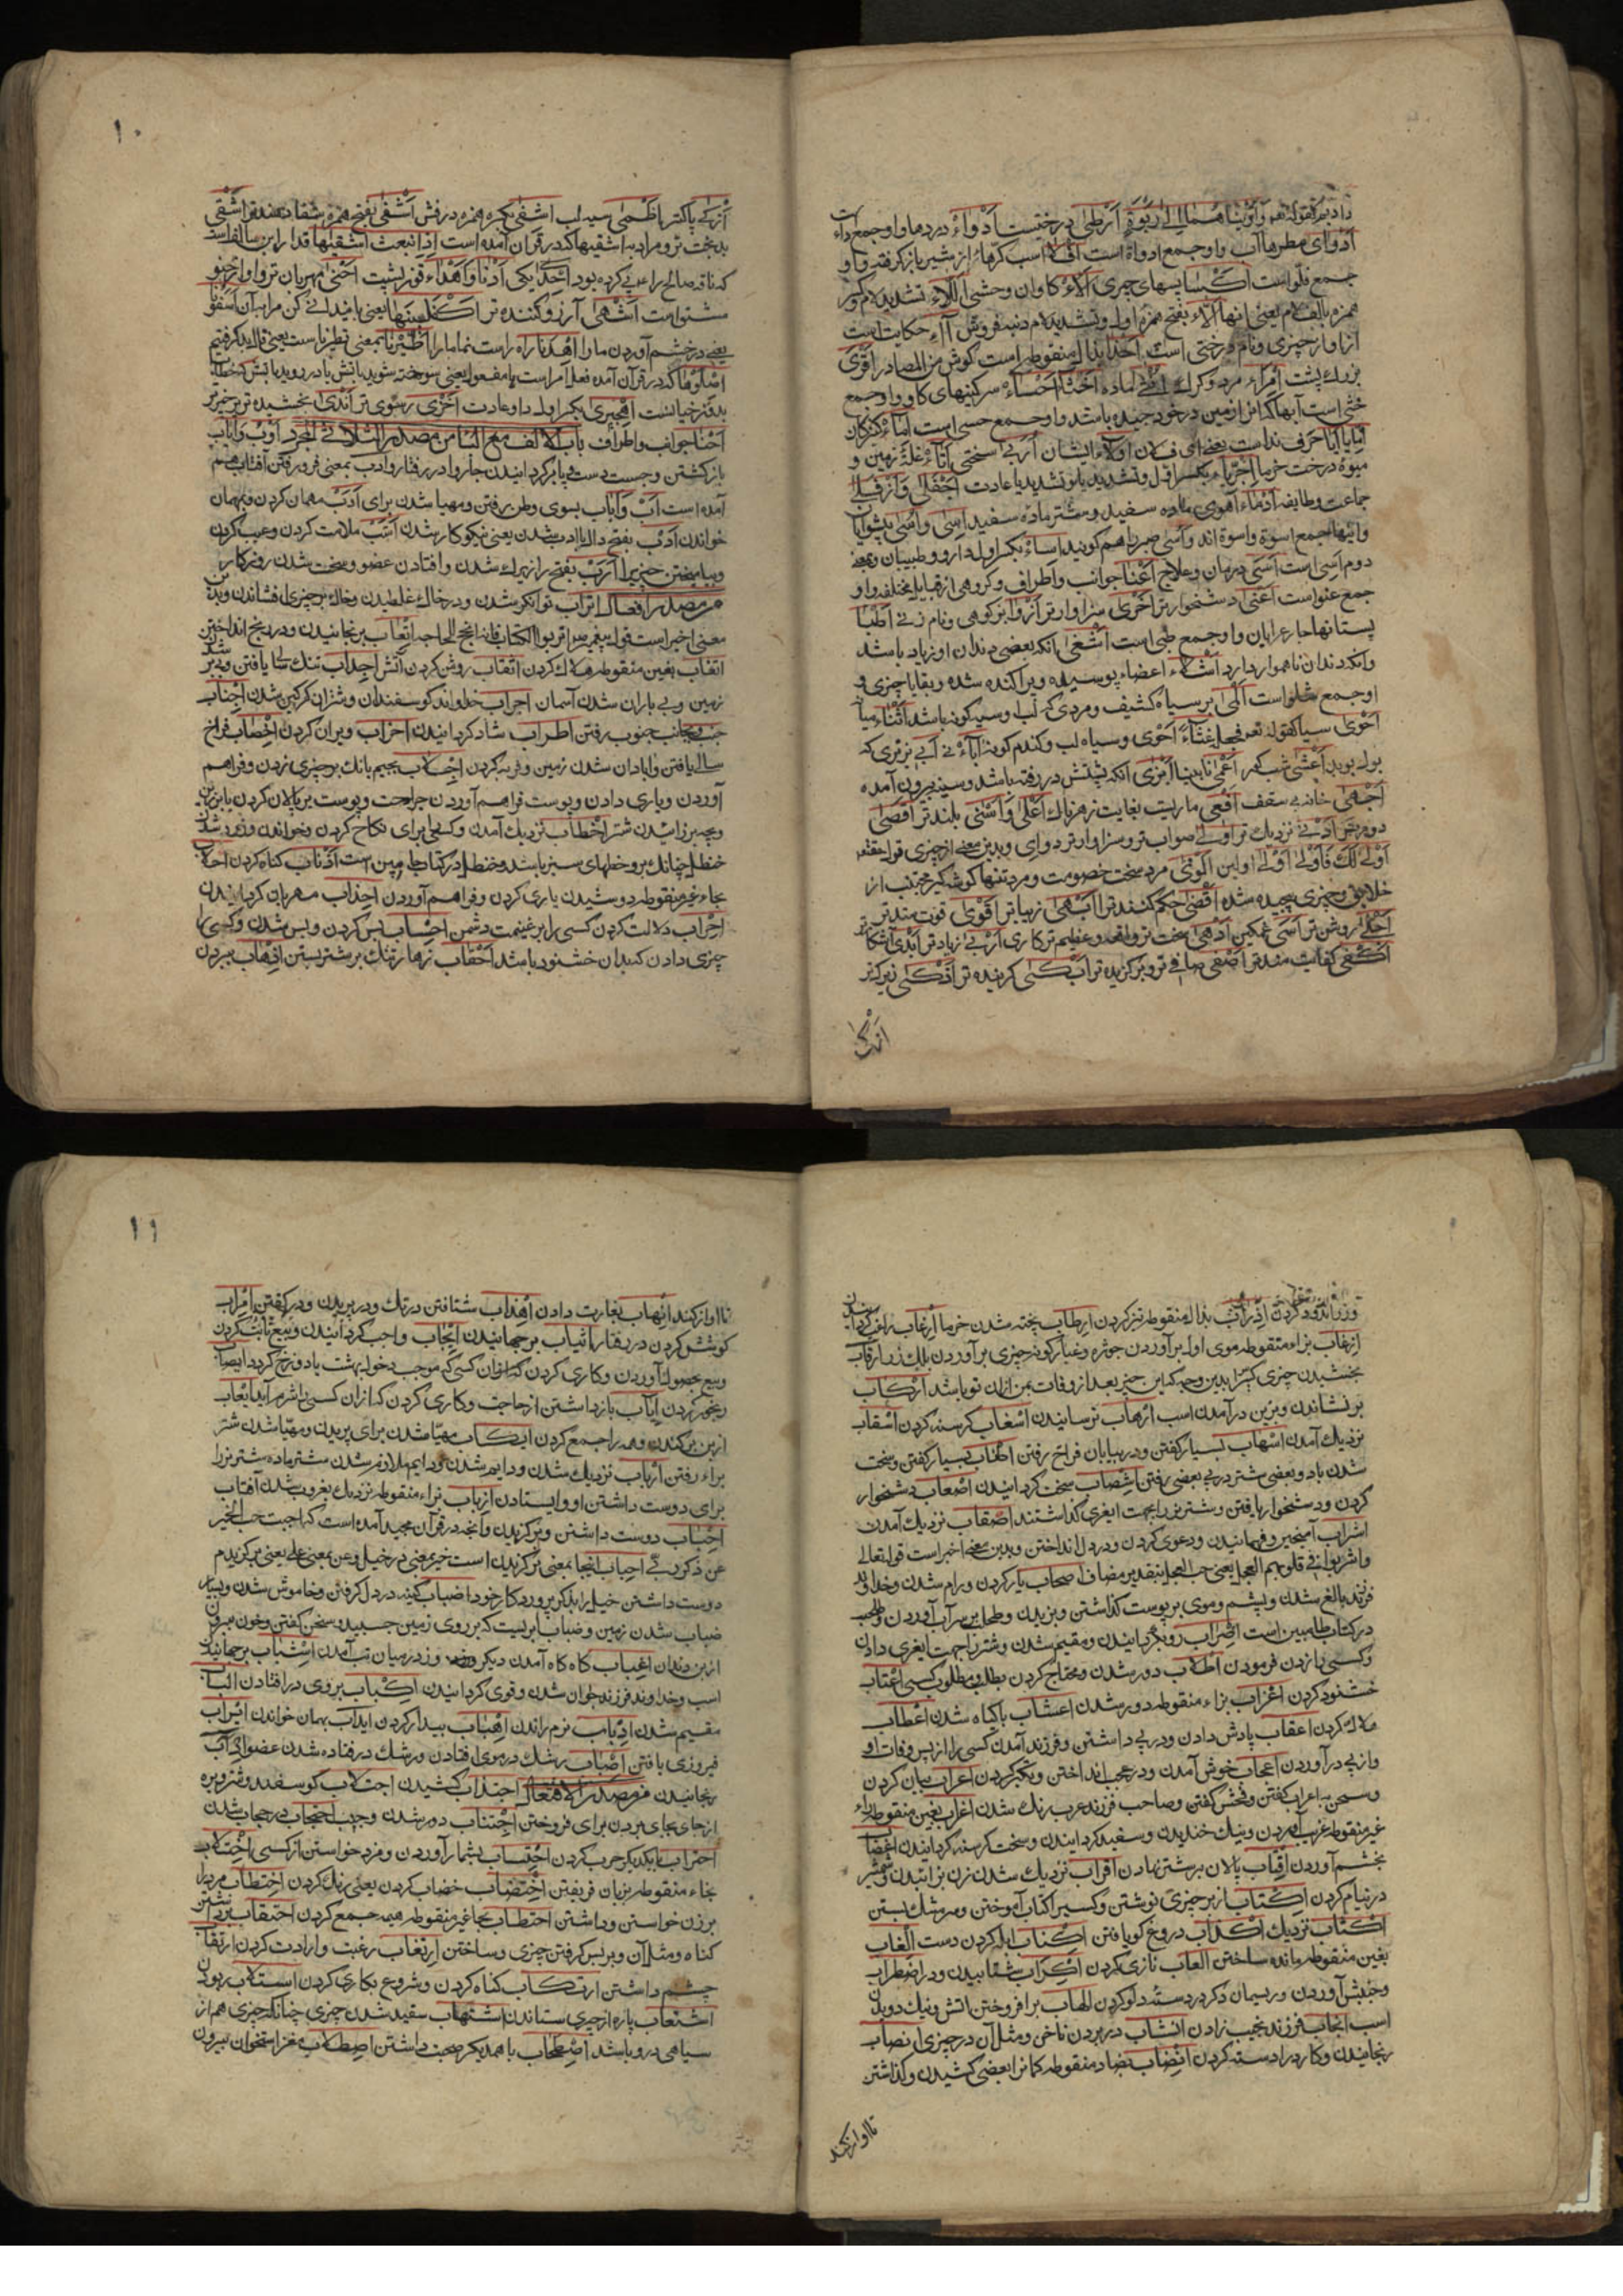 دادیم کقوله تعم وآویناهما الی ربوة ارطی درختیست ادواء دردها واو جمع داء است
ادوای مطرهاآب واو جمع اداوة است افلاء اسب کرّهاء از شیر باز کرفته واو
جمع فلو است اکسا پسهای چیزی آلاء کاوان وحشی اللاء تشدید لام وکسر
همزه بالف لام یعنی اینها الآء بفتح همزه اول وتشدید لام دنبه فروش آاء حکایت است
از آواز چیزی ونام درختی است احذا بذال منقوطه است کوش من المصادر اقوی
بزرك پشت امراء مرد وکرك ماده اخثا احساء سرکینهای کاو واو جمع
خثی است آبها که از زمین در خود جیده باشد واو جمع حسی است اماء کنیزکان
ایا یا آیا حرف نداست یعنی ای فلان اولاء ایشان اربی سختی اتاء غلّه زمین و
میوهٔ درخت خرما اجریاء بکسر اول وتشدید یا وتشدید یا عادت اجفلی وازفلی
جماعت وطایفه ادماء آهوی ماده سفید وشتر ماده سفید اسی واسی پیشوایان
واینها جمع اسوة واسوة اند واسی صبر را هم کویند اساء بکسر اول دارو وطبیبان وبمعنی
دوم آسی است اسی درمان وعلاج اعنا جوانب واطراف وکروهی از قبایل مختلف واو
جمع عنو است اعتی دشخوارتر اخری سزاوارتر اروا بزکوهی ونام زنی اطبا
پستانها چار عرابان واو جمع طبی است اشغی انکه بعضی دندان او زیاد باشد
وانکه دندان ناهموار دارد اشلاء اعضاء پوسیده وپراکنده شده وبقایا چیزی و
او جمع شلو است المی بر سیاه کثیف ومردی که لب او سیه کونه باشد اثناء میان
احوی سیاه کقوله تعم فجعله غثاء احوی وسیاه لب وکندم کونه آباء نی آبی نرنری که
بول بوید اعشی شب کور اعمی نابینا ابزی انکه پشتش در رفته باشد وسینه بیرون آمده
اجهی خانه بی سقف افعی ماریست بغایت زهرناك اعلی واسنی بلندتر اقصی
دورتر ادنی نزدیك تر اولی صواب تر وسزاوارتر دوای وبدین معنی از چیزی قوله تعم
اولی لك فاولی اولین الوی مرد سخت خصومت ومرد تنها کوشه کیر مجتنب از
خلایق وچیزی پیچیده شده اقضی حکم کننده تر ابهی زیباتر اقوی قوت مندتر
اجلی روشن تر اسی غمکین ادهی سخت تر واقعه وعظیم تر کاری اربی زیادتر ابدی آشکارتر
اکفی کفایت مندتر اصفی صافی تر وبرکزیده تر ابکی کرینده تر اذکی زیرك تر
ازکی
۱۰
ازکی پاکتر اظمی سیه لب اشفی بکسر همزه درفش اشفی بفتح همزه شفا دهنده تر اشقی
بدبخت تر ومراد به اشقیها که در قران آمده است اذا نبعث اشقیها قدار ابن سالف است
که ناقه صالح را عقر کرده بود احدی یکی ادنا واهداء قوز پشت احنی مهربان تر واو از حنو
مشتوا ست اشهی آرزو کننده تر اکفلینها یعنی پایندانی کن مرا به آن اسفونا
یعنی در خشم آوردن ما را اهدنا راه راست نما ما را اطیرنا بمعنی تطیرنا ست یعنی فال بد کرفتیم
اصلوها که در قرآن آمده فعل امر است با مفعول یعنی سوخته شوید بآتش یا در روید بآتش که خطاب
بدوزخیانست اهجیری بکسر اول داو عادت اخزی رسوی تر اندی بخشیده تر چیز تر
احنا جوانب واطراف باب الالف مع الباء من مصدر الثلاثی المجرد اوب وایاب
بازکشتن وجست دست وپا بر کردانیدن جاروا در رفتار وادب بمعنی فرو رفتن آفتاب هم
آمده است اب واباب بسوی وطن رفتن ومهیا شدن برای ادب مهمان کردن وبمهمان
خواندن ادب بفتح دال با ادب شدن یعنی نیکوکار شدن اشب ملامت کردن وعیب کردن
وبیامیختن چیزی ارب بفتح را زیرك شدن وافتادن عضو وسخت شدن روزکار
من مصدر افعال اتراب توانکر شدن ودر خاك غلطیدن وخاك بر چیزی افشاندن وبدین
معنی اخیر است قول پیغمبر اتربوا الکتاب فانه انجح للحاجة اتعاب برنجانیدن ودر رنج انداختن
اتغاب بغین منقوطه هلاك کردن اثقاب روشن کردن آتش اجداب تنك سال یافتن ودیر شدن
زمین وبی باران شدن آسمان اجراب خداوند کوسفندان وشتران کرکین شدن اجناب
جنب وبجانب جنوب رفتن اطراب شاد کردانیدن اخراب ویران کردن اخصاب فراخ
سالی یافتن وابادان شدن زمین وفربه کردن اجلاب بجیم بانك بر چیزی زدن وفراهم
آوردن ویاری دادن وپوست فراهم آوردن جراحت وپوست بر پالان کردن
وبچه بر زائیدن شتر اخطاب نزدیك آمدن وکسی برای نکاح کردن وخواندن وزرد شدن
حنظل چنانك بر وخطهای سبز باشد وخنظل در کتاب جا مبین است اذناب کناه کردن احلاب
بحاء غیر منقوطه دوشیدن یاری کردن وفراهم آوردن احداب مهربان کردانیدن
احراب دلالت کردن کسی را بر غنیمت دشمن احساب بس کردن وبس شدن وکسی را
چیزی دادن که بدان خشنود باشد احقاب زهار تنك بر شتر بستن اذهاب ببردن
وزر اندود کردن اذراب بذال منقوطه تیز کردن ارطاب پخته شدن خرما ارغاب راغب کردانیدن
ازغاب بزاء منقوطه موی اول برآوردن جوژه وغبار کونه چیزی برآوردن بالك زر ارقاب
بخشیدن چیزی کسی را بدین وجه که این چیز بعد از وفات من ازان تو باشد ارکاب
برنشاندن وبزین درآمدن اسب ارهاب ترسانیدن اسغاب کرسنه کردن اسقاب
نزدیك آمدن اسهاب بسیار کفتن ودر بیابان فراخ رفتن اطناب بسیار کفتن وسخت
شدن باد وبعضی شتر در پی بعضی رفتن اشصاب سخت کردانیدن اصعاب دشخوار
کردن ودشخوار یافتن وشتر نر را بجهت ایغری کذاشتند اصقاب نزدیك آمدن
اشراب آمیختن وفهمانیدن ودعوی کردن ودر دل انداختن وبدین معنی اخیر است قوله تعالی
واشربوا فی قلوبهم العجل یعنی حب العجل بتقدیر مضاف اصحاب یار کردن ورام شدن وخداوند
فرزند بالغ شدن وپشم وموی بر پوست کذاشتن وبزیدن وطحلب بر سر آب آوردن وطحلب
در کتاب طا مبین است اضراب رو بکردانیدن ومقیم شدن وشتر را بجهت ایغری دادن
وکسی را زدن فرمودن اطلاب دور شدن ومحتاج کردن بطلب ومطلوب کسی اعتاب
خشنود کردن اعزاب بزاء منقوطه دور شدن اعشاب باکیاه شدن اعطاب
هلاك کردن اعقاب پاداش دادن ودر پی داشتن وفرزند آمدن کسی را از پس وفات او
واز پی درآوردن اعجاب خوش آمدن ودر عجب انداختن وتکبر کردن اعراب بیان کردن
وسخن به اعراب کفتن وفحش کفتن وصاحب فرزند عرب رنك شدن اغراب بغین منقوطه وراء
غیر منقوطه غریب آوردن ونیك خندیدن وسفید کردانیدن وسخت کرسنه کردانیدن اغضاب
بخشم آوردن اقتاب پالان بر شتر نهادن اقراب نزدیك شدن زن بزائیدن وشمشیر
در نیام کردن اکتاب از بر چیزی نوشتن وکسی را کتاب آموختن وسر مشك بستن
اکثاب نزدیك اکذاب دروغ کو یافتن اکناب ابله کردن دست الغاب
بغین منقوطه مانده ساختن العاب بازی کردن اکراب شتابیدن ودر اضطراب
وجنبش آوردن وریسمان دکر در دسته دلو کردن الهاب برافروختن اتش ونیك دویدن
اسب انجاب فرزند نجیب زادن انشاب در بردن ناخن ومثل آن در چیزی انصاب
رنجانیدن وکارد را دسته کردن انضاب بضاد منقوطه کمانرا بعضی کشیدن وکذاشتن
تا اواز کند
۱۱
تا اواز کند انهاب بغارت دادن اهذاب شتافتن در تك ودر پریدن ودر کفتن اهراب
کوشش کردن در رفتار اثیاب برجهانیدن ایجاب واجب کردانیدن وبیع ثابت کردن
وبیع بحصول آوردن وکاری کردن که ازان کسی که موجب دخول بهشت یا دوزخ کردد ایصاب
رنجور کردن ایاب بازداشتن از حاجت وکاری کردن که ازان کسی را شرم آید ایعاب
از بن برکندن وهمه را جمع کردن ایکاب مهیا شدن برای پریدن ومهیا شدن شتر
براء رفتن ارباب نزدیك شدن ودایم شدن ودایم ملازم شدن شتر ماده شتر نر را
برای دوست داشتن او وایستادن ازباب بزاء منقوطه نزدیك بغروب شدن آفتاب
احباب دوست داشتن وبرکزیدن وانچه در قرآن مجید آمده است که احببت حب الخیر
عن ذکر ربی احباب اینجا بمعنی برکزیدن است خیر بمعنی در خیل وعن بمعنی علی یعنی برکزیدم
دوست داشتن خیل را بر ذکر پروردکار خود اضباب کینه در دل کرفتن وخاموش شدن وبسیار
ضباب شدن زمین وضباب ابریست که بر روی زمین جسبد وسخن کفتن وخون بیرون
از بن دندان اغباب کاه کاه آمدن دیکر وروز در میان تب آمدن اشباب برجهانیدن
اسب وخداوند فرزند جوان شدن وقوی کردانیدن اکباب بروی در افتادن الباب
مقیم شدن ادباب نرم راندن اهباب بیدار کردن ایداب بمهمان خواندن ایراب
فیروزی یافتن اصباب رشك در موی افتادن ورشك در فتاده شدن عضو ایاب
رنجانیدن من مصدر الافتعال اجتذاب کشیدن اجتلاب کوسفند وشتر وبره
از جای بجای بردن برای فروختن اجتناب دور شدن وجنب احتجاب در حجاب شدن
احتراب با یکدیکر حرب کردن احتساب بشمار آوردن ومزد خواستن از کسی اختلاب
بخاء منقوطه بزبان فریفتن اختضاب خضاب کردن یعنی رنك کردن اختطاب مرد را
بر زن خواستن وداشتن احتطاب بحاء غیر منقوطه هیمه جمع کردن احتقاب برداشتن
کناه ومثل آن وبر پس کرفتن چیزی وساختن ارتغاب رغبت وارادت کردن ارتقاب
چشم داشتن ارتکاب کناه کردن وشروع بکاری کردن استلاب ربودن
اشتعاب پاره از چیزی ستاندن اشتهاب سفید شدن چیزی چنانکه چیزی هم از
سیاهی در و باشد اصطحاب با همدیکر صحبت داشتن اصطلاب مغز استخوان بیرون